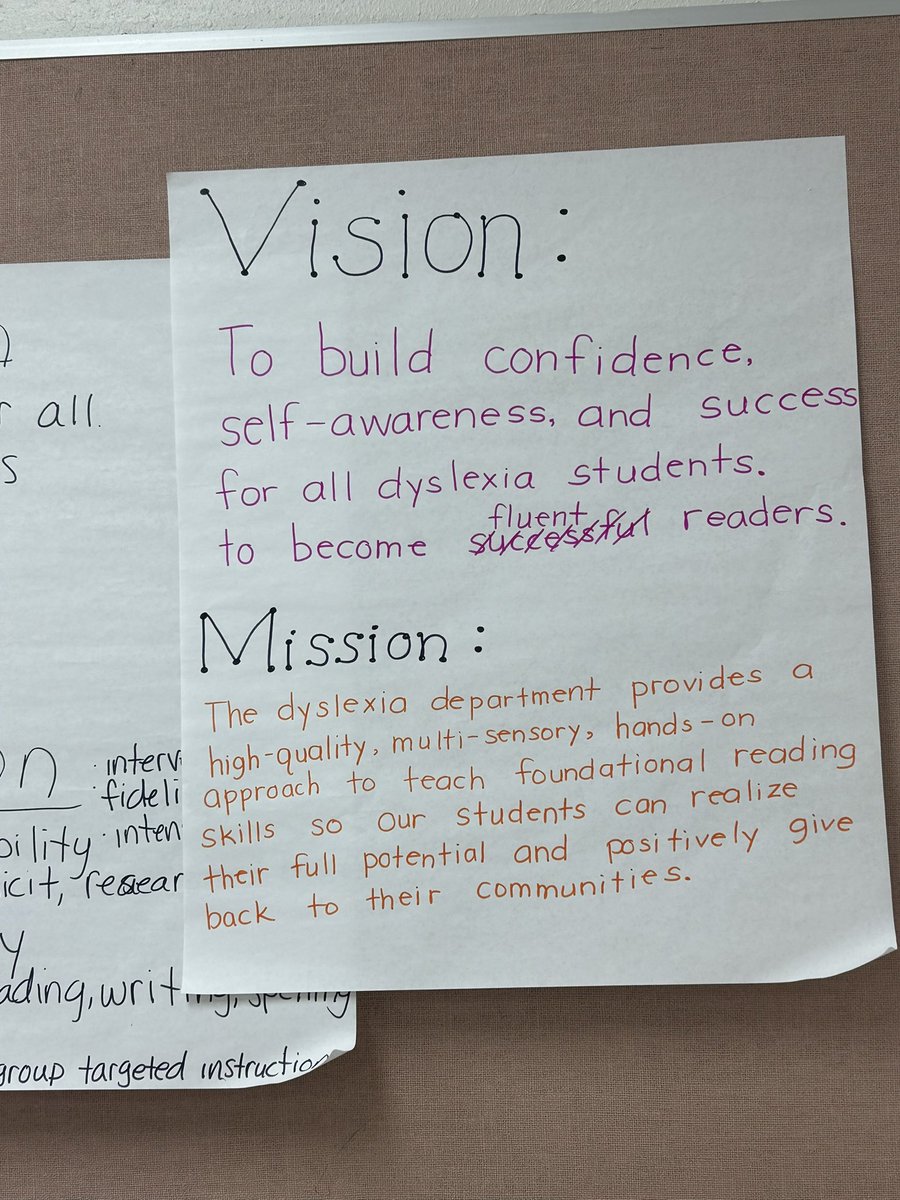 all.
s
on
interv
fideli
bility
inten
icit, researc
y
ading, writing, spelling
group targeted instruction
Vision:
To build confidence,
self-awareness, and success
for all dyslexia students.
fluent
to become successful readers.
Mission:
The dyslexia department provides a
high-quality, multi-sensory, hands-on
approach to teach foundational reading
skills so our students can realize
their full potential and positively give
back to their communities.